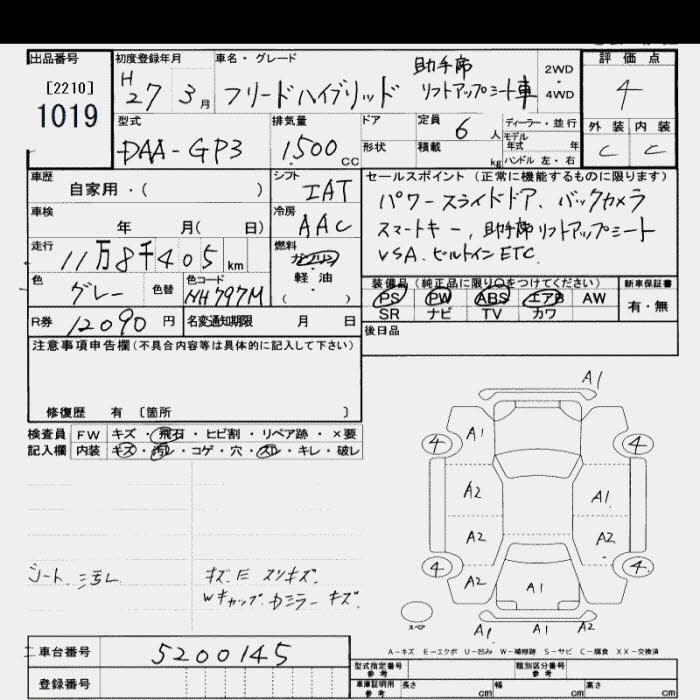 出品番号 初度登録年月 車名・グレード 評価点
[2210] H27 3月 フリードハイブリッド 助手席リフトアップシート車 2WD・4WD 4
1019
型式 排気量 ドア 定員 6人 ディーラー・並行 外装 内装
DAA-GP3 1,500cc 形状 積載 kg モデル年式 年 C C
ハンドル 左・右
車歴 シフト セールスポイント (正常に機能するものに限ります)
自家用・( ) IAT パワースライドドア、バックカメラ
車検 冷房 スマートキー、助手席リフトアップシート
年 月( 日) AAC VSA、ビルトインETC.
走行 燃料
11万8千405km ガソリン
色 グレー 色替 色コード NH797M 軽油
( )
装備品 (純正品に限り○をつけてください) 新車保証書
PS PW ABS エアB AW 有・無
SR ナビ TV カワ
R券 12090円 名変通知期限 月 日
後日品
注意事項申告欄 (不具合内容等は具体的に記入して下さい)
修復歴 有 [箇所 ]
検査員 FW キズ・飛石・ヒビ割・リペア跡・×要
記入欄 内装 キズ・汚レ・コゲ・穴・スレ・キレ・破レ
A1
4 A1 4
A2 A1
A2 A2
4 A2 A1 4
スペア A1 A1 A2
シート ニ汚レ
キズ.E スリキズ.
Wキャップ.Dミラー キズ.
A-キズ E-エクボ U-凹み W-補修跡 S-サビ C-腐食 XX-交換済
車台番号 5200145
登録番号
型式指定番号 参考 類別区分番号 参考
車庫証明用 参考 長さ cm 幅 cm 高さ cm